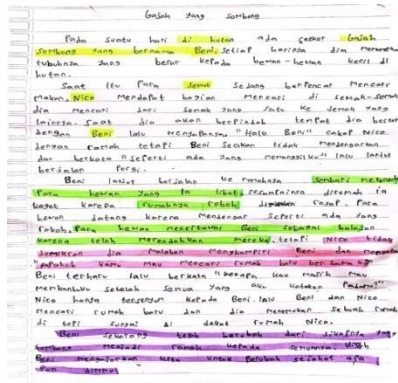 Gajah yang Sombong
Pada suatu hari di hutan ada seekor Gajah
Sombong yang bernama Beni. Setiap harinya dia
tubuhnya yang besar kepada hewan-hewan kecil di
hutan.
Saat itu Para Semut Sedang berpencar Mencari
Makan, Nico Mendapat bagian Mencari di semak-semak
dia Mencari dari Semak yang satu ke Semak yang
lainnya. Saat dia akan berpindah tempat dia
dengan Beni lalu Menyapanya "Halo Beni" cakap Nico
dengan ramah tetapi Beni Seakan tidak Mendengarkan
dan berkata "Seperti ada yang Memanggilku" lalu lanjut
berjalan Pergi.
Beni lanjut berjalan ke rumahnya Sembari
Para hewan yang ia lihat, sesampainya dirumah ia
kaget karena rumahnya roboh Para
hewan datang karena Mendengar Seperti ada yang
roboh, Para hewan menertawai Beni Sebagai balasan
karena telah Merendahkan Mereka, tetapi Nico tidak
demikian dia Malahan Menghampiri Beni dan
kamu Mau Mencari rumah baru
Beni terharu lalu berkata "kenapa kau Masih Mau
Membantuku setelah Semua yang aku katakan Padamu"
Nico hanya tersenyum kepada Beni. lalu Beni dan Nico
Mencari rumah baru dan dia Menemukan Sebuah rumah
di tepi sungai di dekat rumah Nico.
Beni Sekarang telah berubah dari Sikapnya yang
Sombong Menjadi ramah kepada Semuanya
Beni Mengajarkan kita untuk Berubah